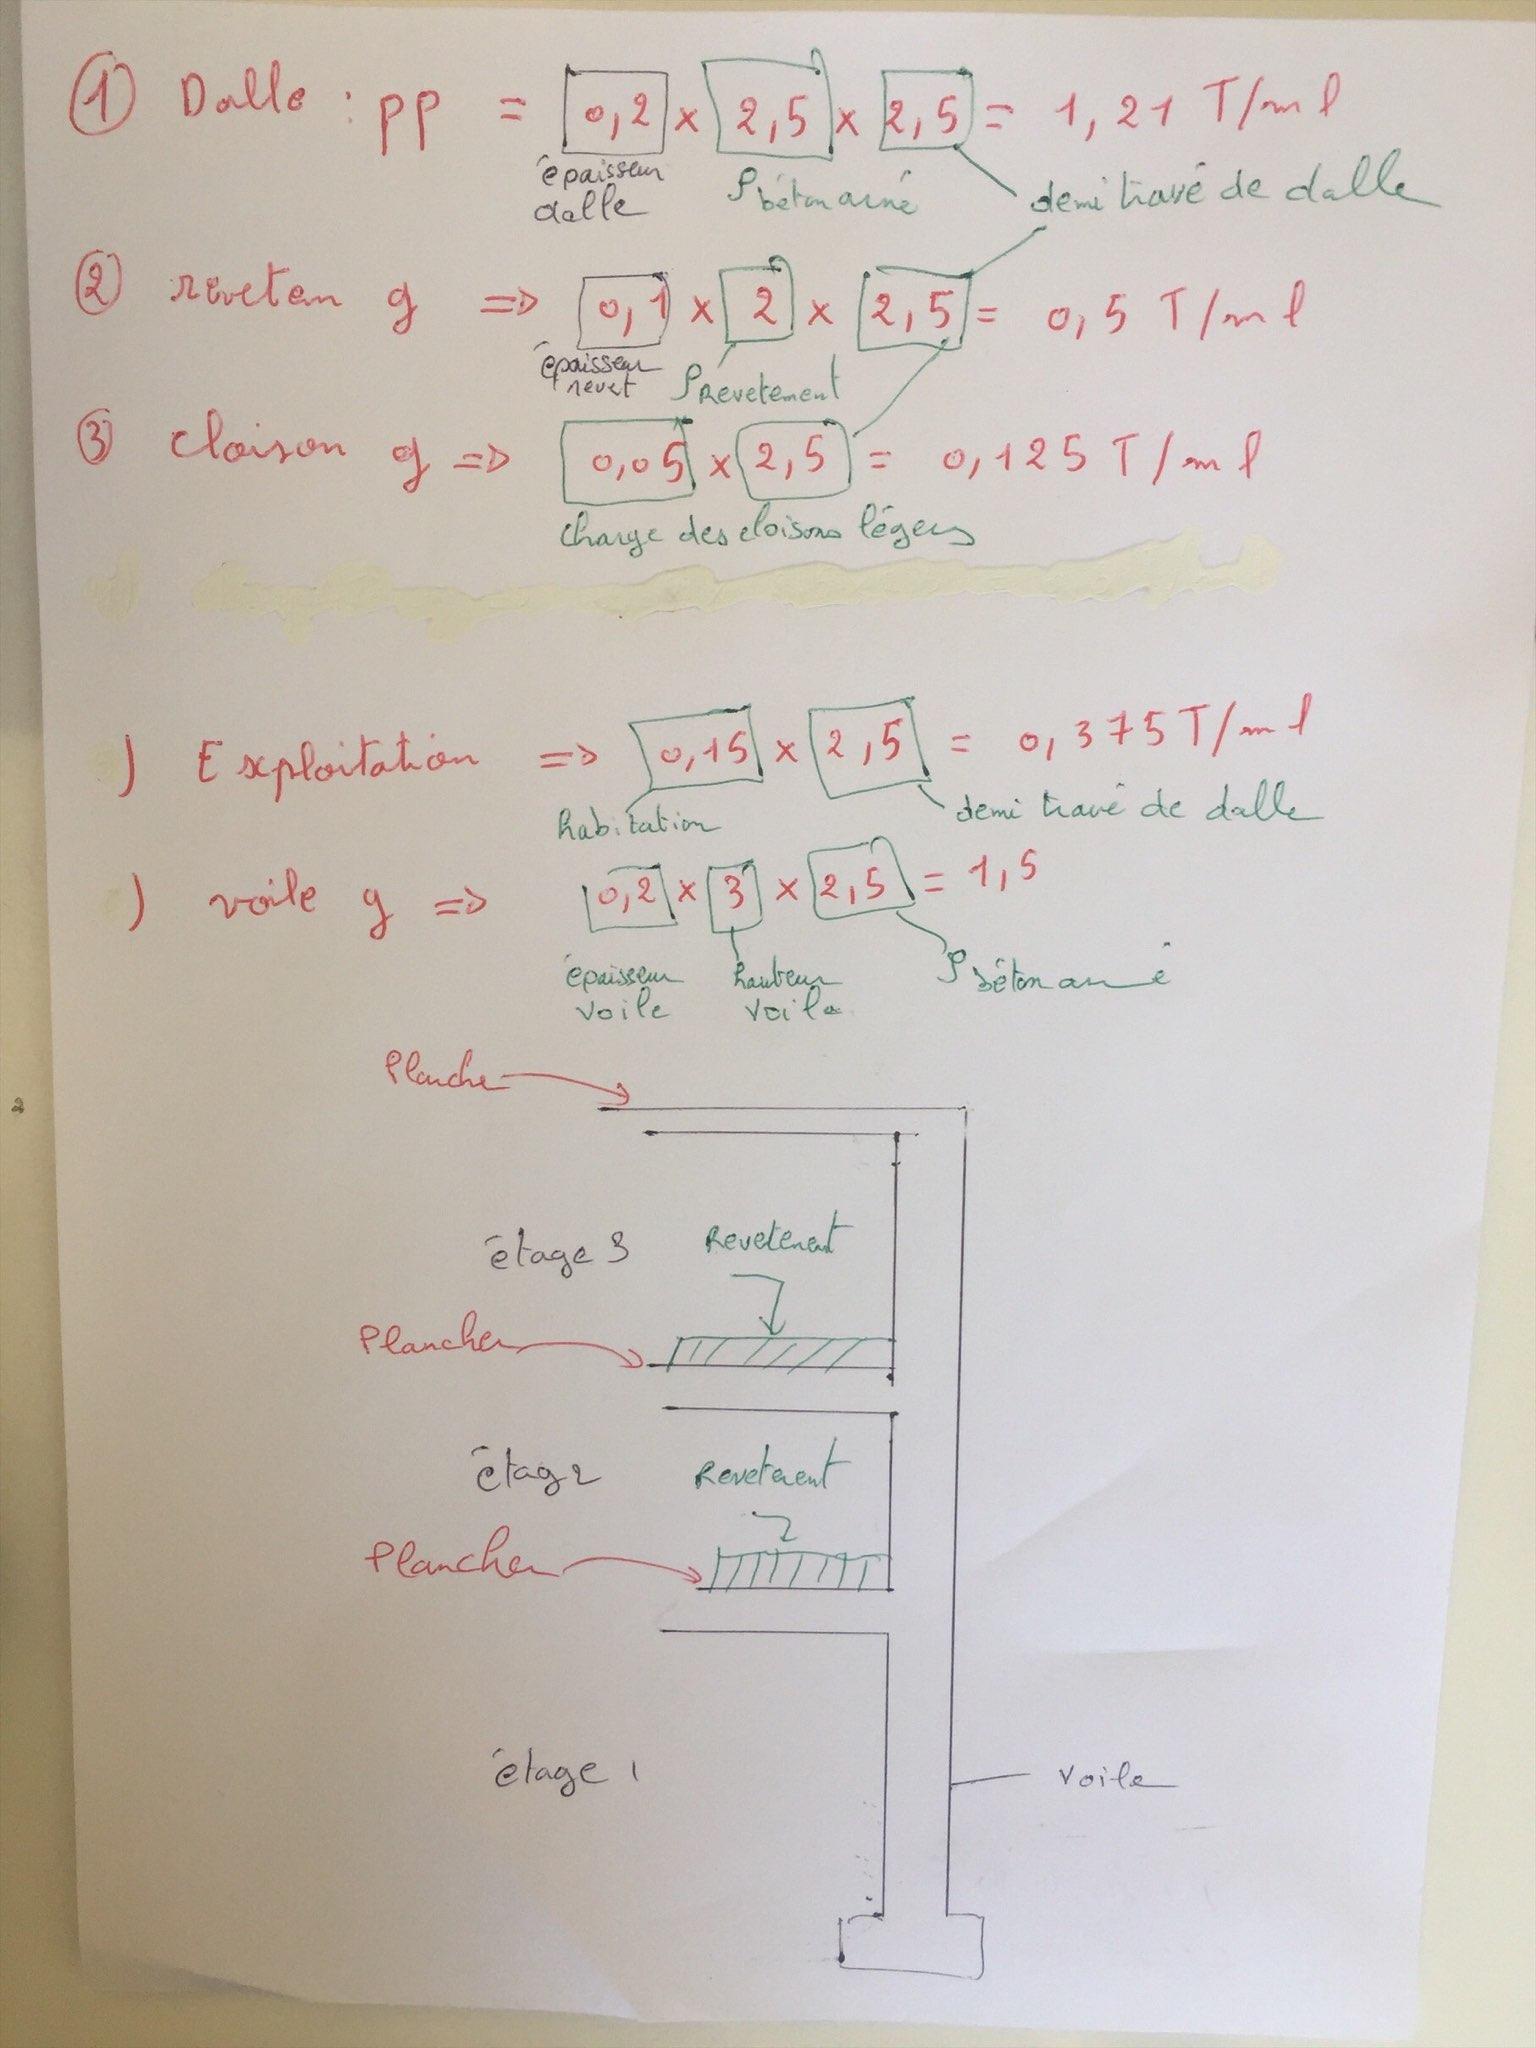 ① Dalle : pp = 0,2 x 2,5 x 2,5 = 1,21 T/ml
épaisseur dalle
ρ béton armé
demi travé de dalle
② revetem g => 0,1 x 2 x 2,5 = 0,5 T/ml
épaisseur revet
ρ Revetement
③ cloison g => 0,05 x 2,5 = 0,125 T/ml
charge des cloisons légers
) Exploitation => 0,15 x 2,5 = 0,375 T/ml
habitation
demi travé de dalle
) voile g => 0,2 x 3 x 2,5 = 1,5
épaisseur voile
hauteur voile
ρ béton armé
Planche
étage 3
Revetement
Plancher
étag 2
Revetement
Plancher
étage 1
Voile